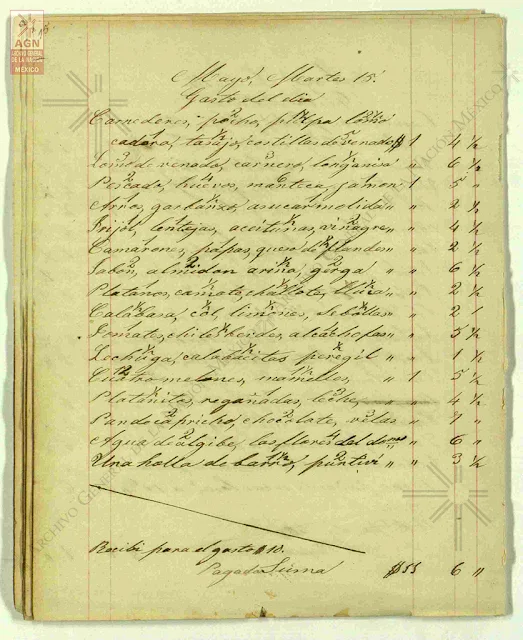 AGN
ARCHIVO GENERAL
DE LA NACIÓN
MÉXICO
Mayo, Martes 15.
Gasto del dia
Carne de res, pecho, pulpa lomo
cadera, tasajo, costillas de venado $ 1 4 ½
Lomo de venado, carnero, longanisa " " 6 ½
Pescado, huevos, manteca, jamon 1 5 "
Arros, garbanzo, asucar molida " " 2 ½
Frijol, lentejas, aceitunas, vinagre " " 4 ½
Camarones, papas, queso de flandes " " 2 ½
Jabon, almidon arina, gerga " " 6 ½
Platanos, camote, challote, " " 2 ½
Calabasa, col, limones, sebollas " " 2
Tomates, chiles berdes, alcachofas " " 5 ½
Lechuga, calabacitas peregil " " 1 ½
Cuatro melones, mameilles, " 1 5 ½
Platanitos, regañadas, leche, " 4 ½
Pan de a pricho, chocolate, velas " " 7 "
Agua de algibe, las flores del " " 6 "
Una holla de barro, " " 3 ½
Recibi para el gasto $10.
Pagado Suma $55 6 "